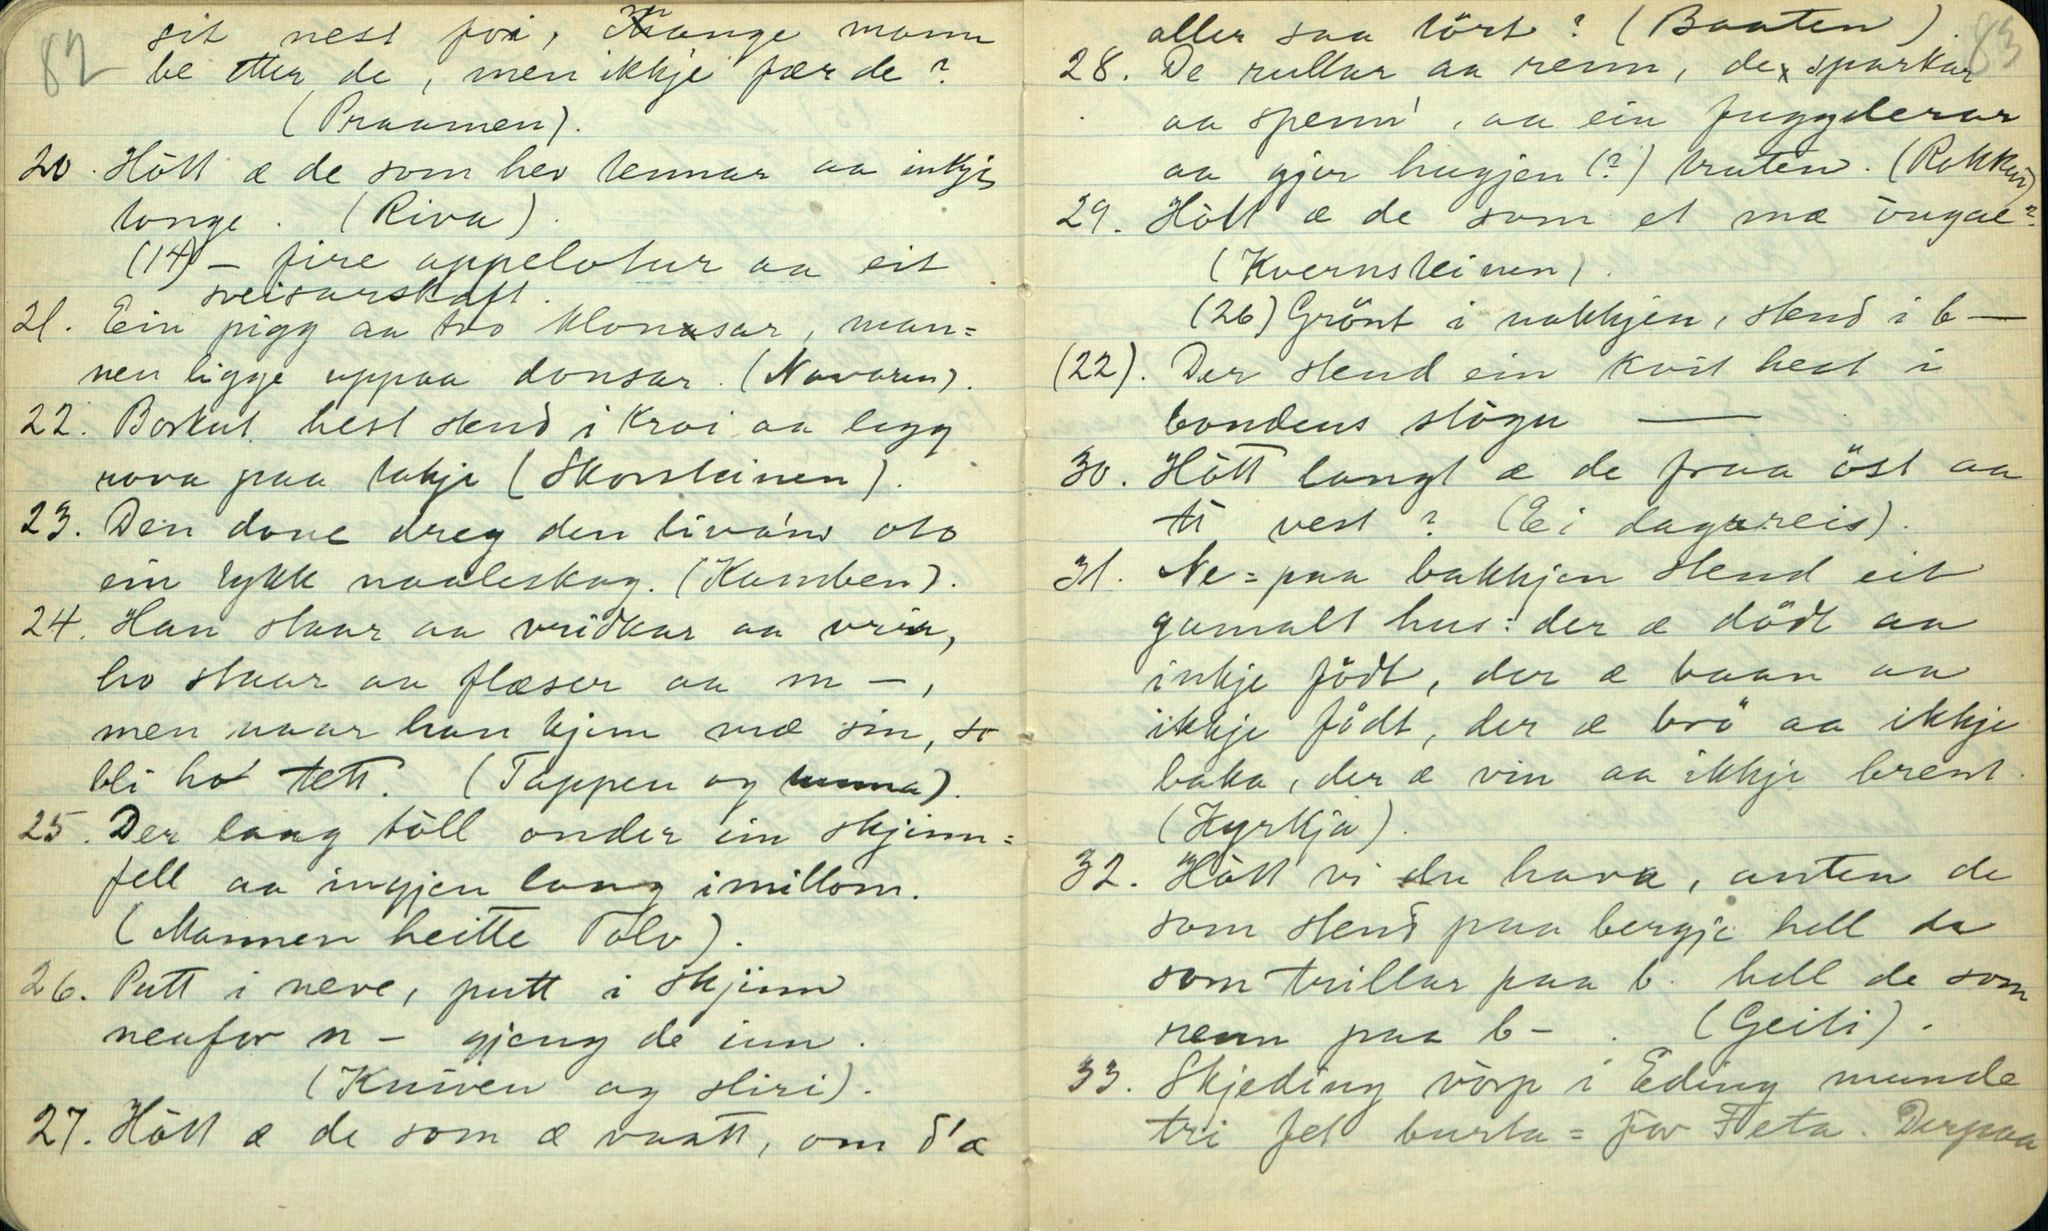 82
sit nest foi, mange mann
be etter de, men ikkje fær de?
(Praamen).
20. Hótt æ de som hev tennar aa inkji
tonge. (Riva)
(14) – fire appelotur aa eit
sveisarskaft.
21. Ein pigg aa tvo klonsar, man=
nen ligge uppaa donsar. (Navaren).
22. Borkut hest stend i kroi aa legg
rova paa takje (Skorsteinen).
23. Den doue dreg den livand oto
ein tykk naaleskog. (Kamben).
24. Han staar aa vridkar aa vrir,
ho staar aa flæser aa m –,
men naar han kjem mæ sin, so
bli ho tett. (Tappen og tunna).
25. Der laag tôll onder ein skjinn=
fell aa ingjen laag imillom.
(Mannen heitte Tolv).
26. Putt i neve, putt i skjinn
neafor n – gjeng de inn.
(Kniven og sliri).
27. Hótt æ de som æ vaatt, om d'æ
83
aller saa tört? (Baaten).
28. De rullar aa renn, de sparkar
aa spenn', aa ein fuggderar
aa gjer hugjen (?) truten. (Rokken)
29. Hótt æ de som et mæ öugae?
(Kvernsteinen).
(26) Grönt i nakkjen, stend i b —
(22). Der stend ein kvit hest i
bondens stógu —
30. Hótt langt æ de fraa öst aa
ti vest? (Ei dagsreis).
31. Ne=paa bakkjen stend eit
gamalt hus: der æ dödt aa
inkje födt, der æ baan aa
ikkje födt, der æ brö aa ikkje
baka, der æ vin aa ikkje brent.
(Kyrkja).
32. Hótt vi du hava, anten de
som stend paa bergje hell de
som trillar paa b. hell de som
renn paa b – . (Geiti).
33. Skjeding vörp i Eding munde
tri fet burta=for Feta. Derpaa